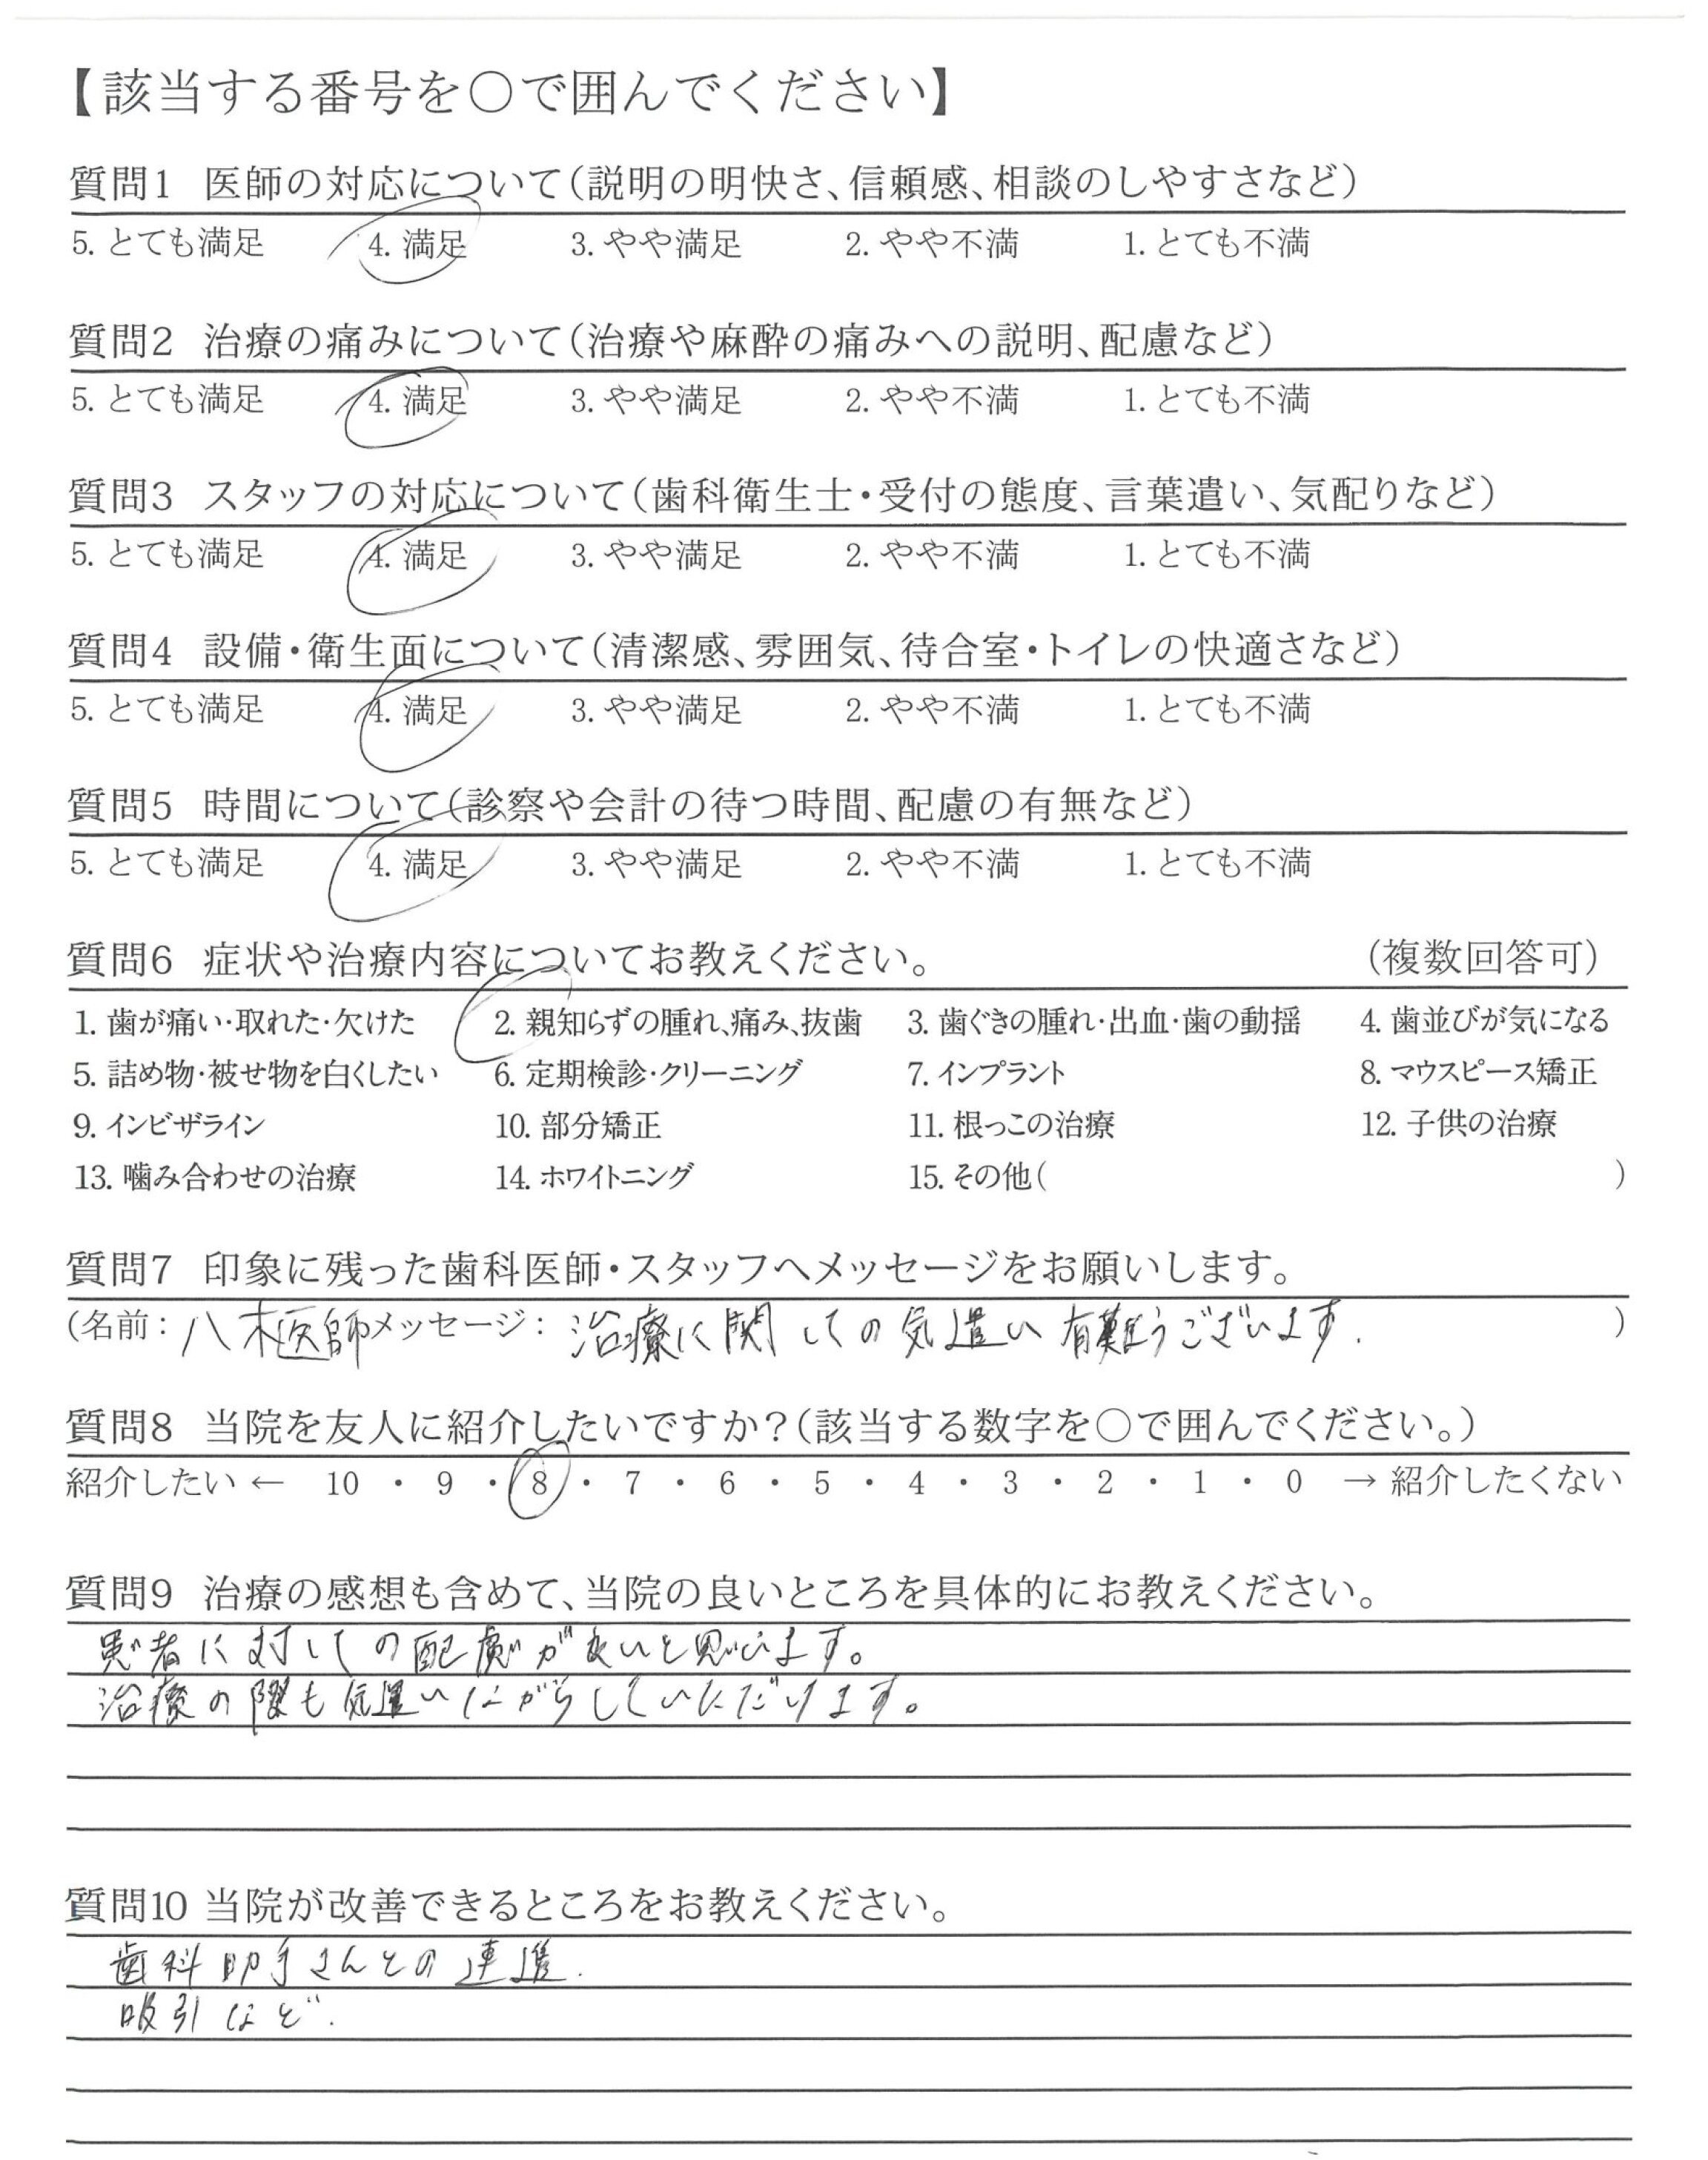 【該当する番号を○で囲んでください】
質問1 医師の対応について(説明の明快さ、信頼感、相談のしやすさなど)
5. とても満足 4. 満足 3. やや満足 2. やや不満 1. とても不満
質問2 治療の痛みについて(治療や麻酔の痛みへの説明、配慮など)
5. とても満足 4. 満足 3. やや満足 2. やや不満 1. とても不満
質問3 スタッフの対応について(歯科衛生士・受付の態度、言葉遣い、気配りなど)
5. とても満足 4. 満足 3. やや満足 2. やや不満 1. とても不満
質問4 設備・衛生面について(清潔感、雰囲気、待合室・トイレの快適さなど)
5. とても満足 4. 満足 3. やや満足 2. やや不満 1. とても不満
質問5 時間について(診察や会計の待つ時間、配慮の有無など)
5. とても満足 4. 満足 3. やや満足 2. やや不満 1. とても不満
質問6 症状や治療内容についてお教えください。 (複数回答可)
1. 歯が痛い・取れた・欠けた 2. 親知らずの腫れ、痛み、抜歯 3. 歯ぐきの腫れ・出血・歯の動揺 4. 歯並びが気になる
5. 詰め物・被せ物を白くしたい 6. 定期検診・クリーニング 7. インプラント 8. マウスピース矯正
9. インビザライン 10. 部分矯正 11. 根っこの治療 12. 子供の治療
13. 噛み合わせの治療 14. ホワイトニング 15. その他( )
質問7 印象に残った歯科医師・スタッフへメッセージをお願いします。
(名前: 八木医師 メッセージ: 治療に関しての気遣い有難うございます. )
質問8 当院を友人に紹介したいですか?(該当する数字を○で囲んでください。)
紹介したい ← 10 ・ 9 ・ 8 ・ 7 ・ 6 ・ 5 ・ 4 ・ 3 ・ 2 ・ 1 ・ 0 → 紹介したくない
質問9 治療の感想も含めて、当院の良いところを具体的にお教えください。
患者に対しての配慮が良いと思います。
治療の際も気遣いながらしていただけます。
質問10 当院が改善できるところをお教えください。
歯科助手さんとの連携.
吸引など.